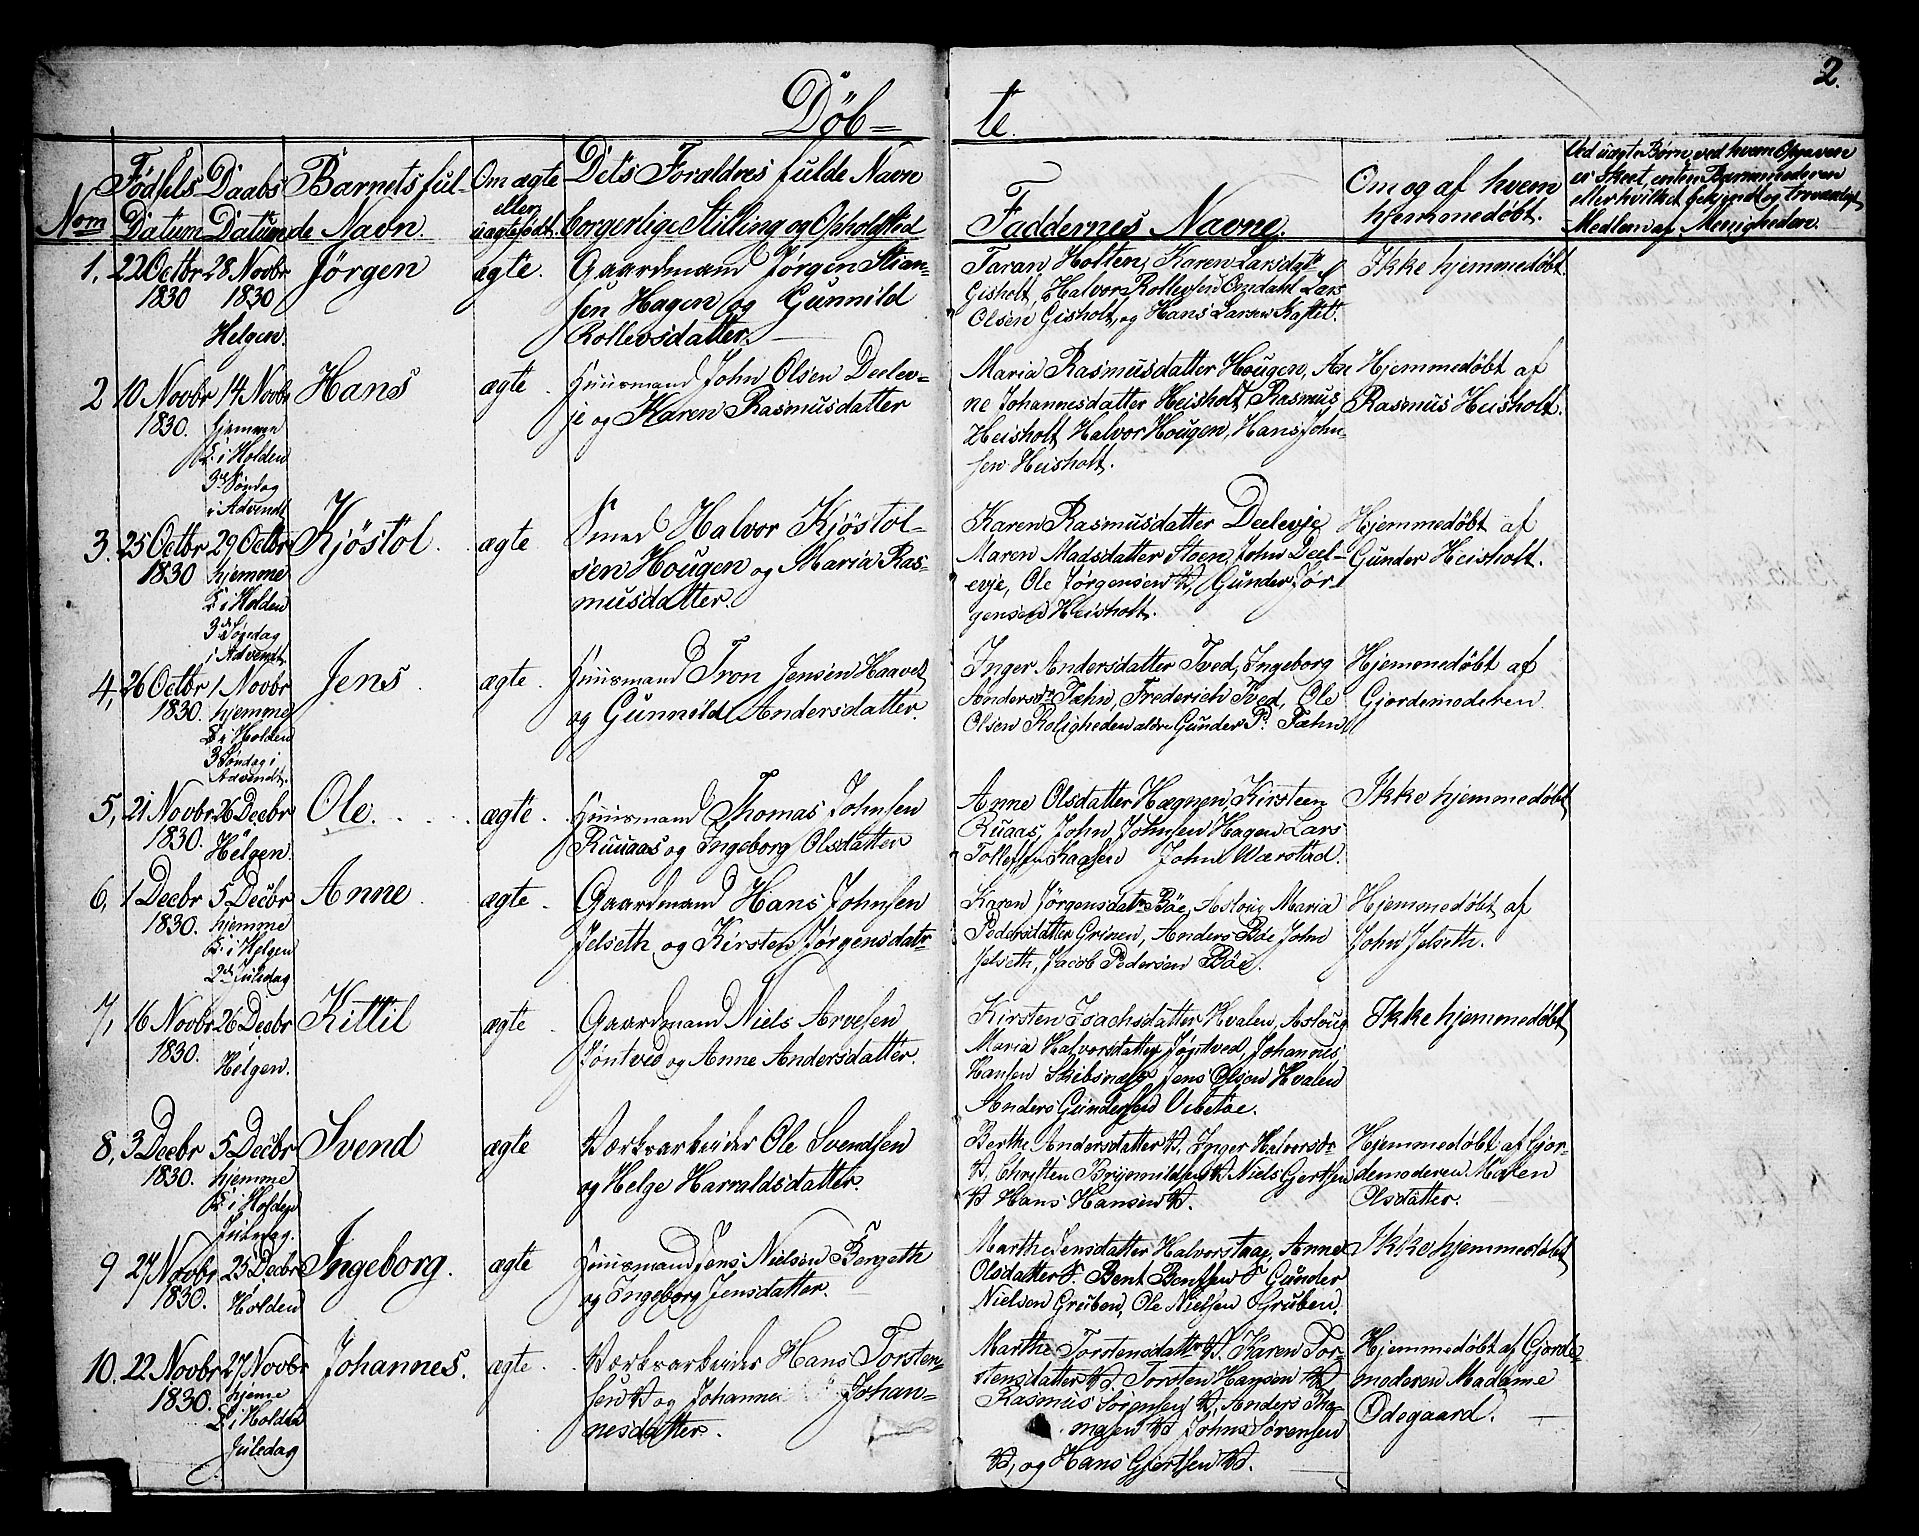 2.
Döb= te.
Nom
Fødsels Datum
Daabs Datum
Barnets ful- de Navn.
Om ægte eller uægtefødt.
Dets Foraldres fulde Navn
borgerlige Stilling og Opholdsted
Faddernes Navne.
Om og af hvem
hjemmedøbt.
Ved uægte Børn, ved hvem Opgaven
er skeet, enten Barnemoderen
eller hvilket bekjendt og troværdigt
Medlem af Menigheden.
1, 22 Octbr 1830
28 Novbr 1830 Helgen.
Jørgen
ægte.
Gaardmand Jørgen Stian-
sen Hagen og Gunnild
Rollevsdatter.
Taran Holten, Karen Larsdatr
Gisholt, Halvor Rollevsen Omdahl Lars
Olsen Gisholt, og Hans Larsen Kastet.
Ikke hjemmedøbt
2 10 Novbr 1830.
14 Novbr hjemme
i Holden
3de Søndag
i Advendt
Hans
ægte.
Huusmand John Olsen Deelev-
je og Karen Rasmusdatter
Maria Rasmusdatter Hougen, An
ne Johannesdatter Heisholt, Rasmus
Heisholt Halvor Hougen, Hans John-
sen Heisholt.
Hjemmedøbt af
Rasmus Heisholt.
3. 25 Octbr 1830
29 Octbr
hjemme
i Holden
3de Søndag
i Advendt
Kjöstol.
ægte
Smed Halvor Kjöstol-
sen Hougen og Maria Ras-
musdatter.
Karen Rasmusdatter Deelevje
Maren Madsdatter Stoen, John Deel-
evje, Ole Jørgensen V, Gunder Jør-
gensen Heisholt.
Hjemmedøbt af
Gunder Heisholt.
4, 26 Octbr 1830.
1 Novbr
hjemme
i Holden
3 Søndag i
Advendt.
Jens
ægte.
Huusmand Tron Jensen Haavet
og Gunnild Andersdatter.
Inger Andersdatter Tved, Ingeborg
Andersdr Tæhn, Frederich Tved, Ole
Olsen Roligheden aldre Gunder P. Tæhn
Hjemmedøbt af
Gjordemoderen
5, 21 Novbr 1830.
26 Decbr
Helgen.
Ole.
ægte.
Huusmand Thomas Johnsen
Ruugaas og Ingeborg Olsdatter
Anne Olsdatter Hægnen, Kirsteen
Rugaas, John Johnsen Hagen Lars
Tollefsen Kaasen John Værstad.
Ikke hjemmedøbt
6, 1 Decbr 1830.
5 Decbr
hjemme
i Helgen
2d Juledag
Anne
ægte.
Gaardmand Hans Johnsen
Jelseth og Kirsten Jørgensdatr
Karen Jørgensdatr Böe, Asloug Maria
Pedersdatter Grinen, Anders Böe John
Jelseth, Jacob Pedersen Böe.
Hjemmedøbt af
John Jelseth.
7, 16 Novbr 1830.
26 Decbr
Helgen.
Kittil
ægte
Gaardmand Niels Arvesen
Jöntved og Anne Andersdatter.
Kirsten Isachsdatter Hvalen, Asloug
Maria Halvorsdatter Jöntved, Johannes
Hansen Skibsnæs Jens Olsen Hvalen
Anders Gundersen Vibetoe.
Ikke hjemmedøbt
8, 3 Decbr 1830.
5 Decbr
hjemme
i Holden
Juledag.
Svend
ægte
Værksarbeider Ole Svendsen
og Helge Harraldsdatter.
Berthe Andersdatter V, Inger Halvorsdr
V, Christen Brynnildsen V Niels Gjertsen
V Hans Hansen V.
Hjemmedøbt af Gjor-
demoderen Maren
Olsdatter.
9 27 Novbr 1830.
25 Decbr
Holden
Ingeborg.
ægte
Huusmand Jens Nielsen Bergeth
og Ingeborg Jensdatter.
Marthe Jensdatter Halvorstaae, Anne
Olsdatter S. Bent Bentsen S Gunder
Nielsen Gruben, Ole Nielsen Gruben.
Ikke hjemmedøbt
10. 22 Novbr 1830.
27 Novbr
hjeme
i Holden
Juledag
Johannes.
ægte.
Værksarbeider Hans Torsten-
sen V og Johanne Johan-
nesdatter.
Marthe Torstensdatter V. Karen Tor-
stensdatter V. Torsten Hansen V
Rasmus Sørensen V, Anders Tho-
masen V John Sørensen
V, og Hans Gjertsen V.
Hjemmedøbt af Gjorde-
moderen Madame
Odegaard.